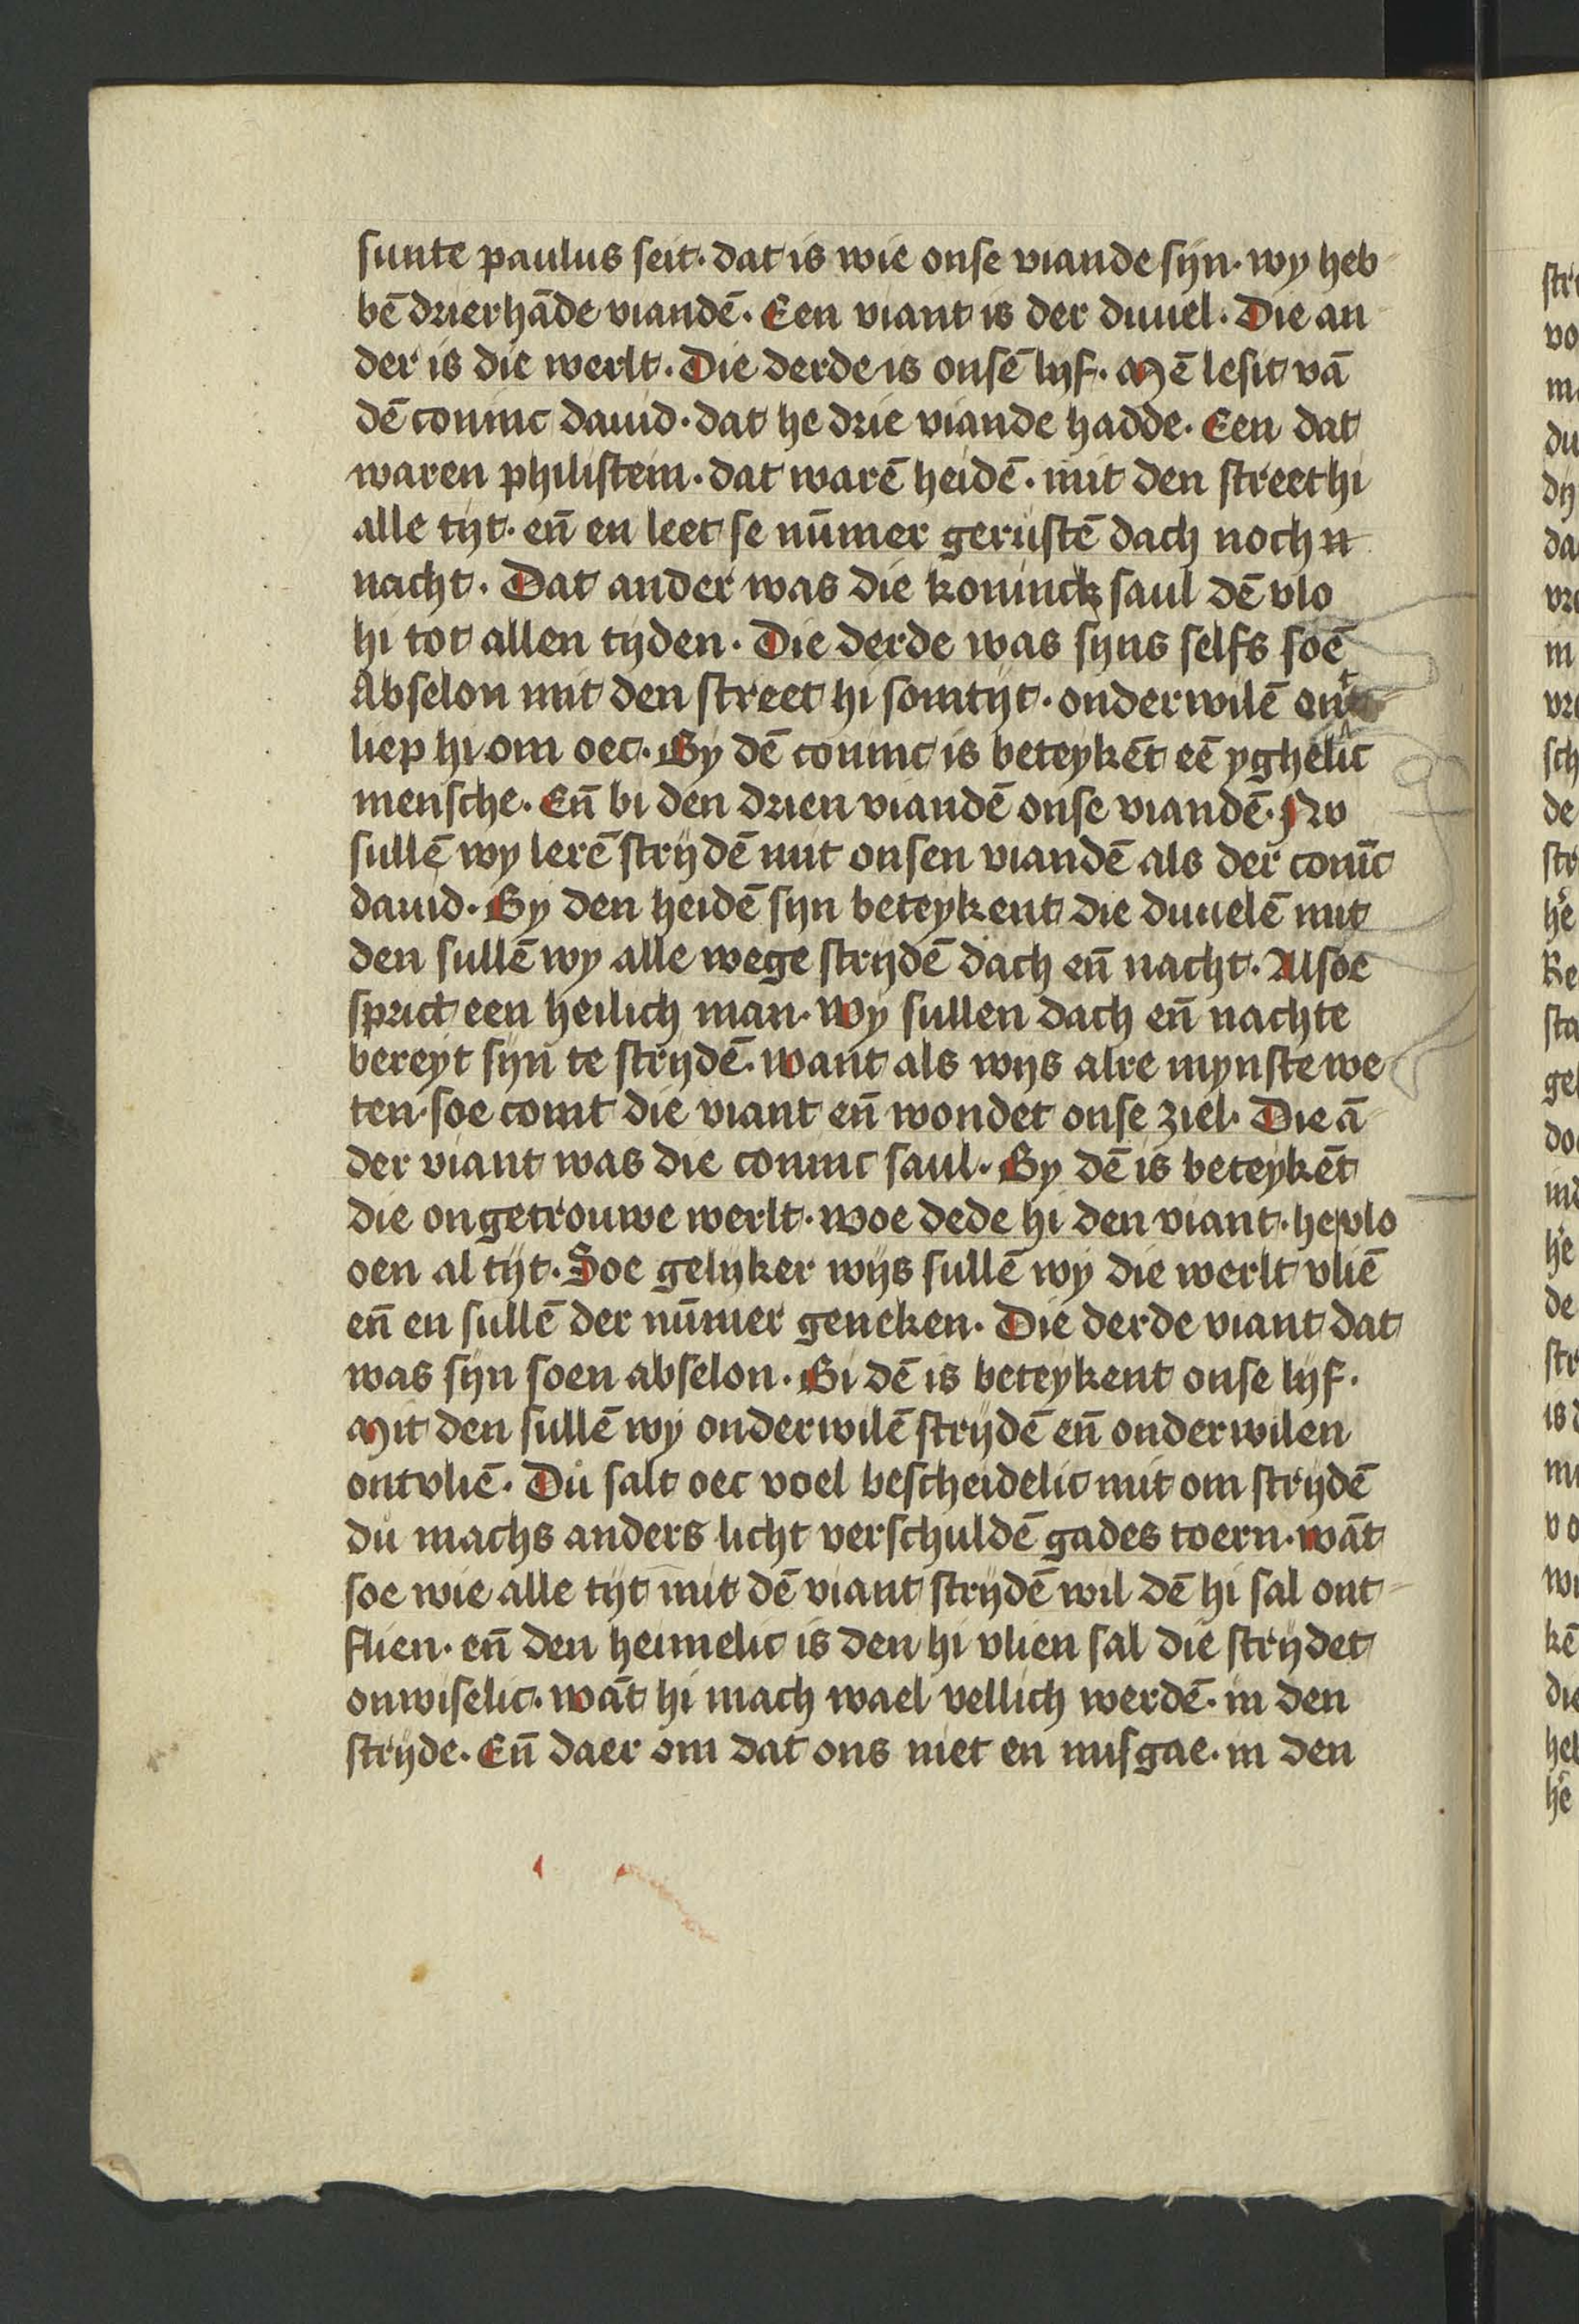 sunte paulus seit· dat is wie onse viande sijn· wy heb
bē drierhāde viandē· Een viant is der duuel· Die an
der is die werlt· Die derde is onsē lijf· Mē lesit vā
dē coninc dauid· dat he drie viande hadde· Een dat
waren philistein· dat warē heidē· mit den street hi
alle tijt· eñ en leet se nūmer gerustē dach noch n
nacht· Dat ander was die koninck saul dē vlo
hi tot allen tyden· Die derde was sijns selfs soē
Abselon mit den street hi somtijt· onderwilē ont
liep hi om oec· By dē coninc is beteykēt eē yghelic
mensche· Eñ bi den drien viandē onse viandē· Nv
sullē wy lerē strijdē mit onsen viandē als der conīc
dauid· By den heidē sijn beteykent die duuelē mit
den sullē wy alle wege strijdē dach eñ nacht· Alsoe
sprict een heilich man· Wy sullen dach eñ nachte
bereyt sijn te strijdē· want als wijs alre mynste we
ten· soe comt die viant eñ wondet onse ziel· Die ā
der viant was die coninc saul· By dē is beteykēt
die ongetrouwe werlt· woe dede hi den viant· he vlo
oen al tijt· Soe gelijker wijs sullē wy die werlt vliē
eñ en sullē der nūmer geneken· Die derde viant dat
was sijn soen abselon· Bi dē is beteykent onse lijf·
Mit den sullē wy onderwilē strijdē eñ onderwilen
ontvliē· Du salt oec voel bescheidelic mit om strijdē
du machs anders licht verschuldē gades toern· wāt
soe wie alle tijt mit dē viant strijdē wil dē hi sal ont
flien· eñ den heimelic is den hi vlien sal die strijdet
onwiselic· wāt hi mach wael vellich werdē· in den
strijde· Eñ daer om dat ons niet en misgae· in den